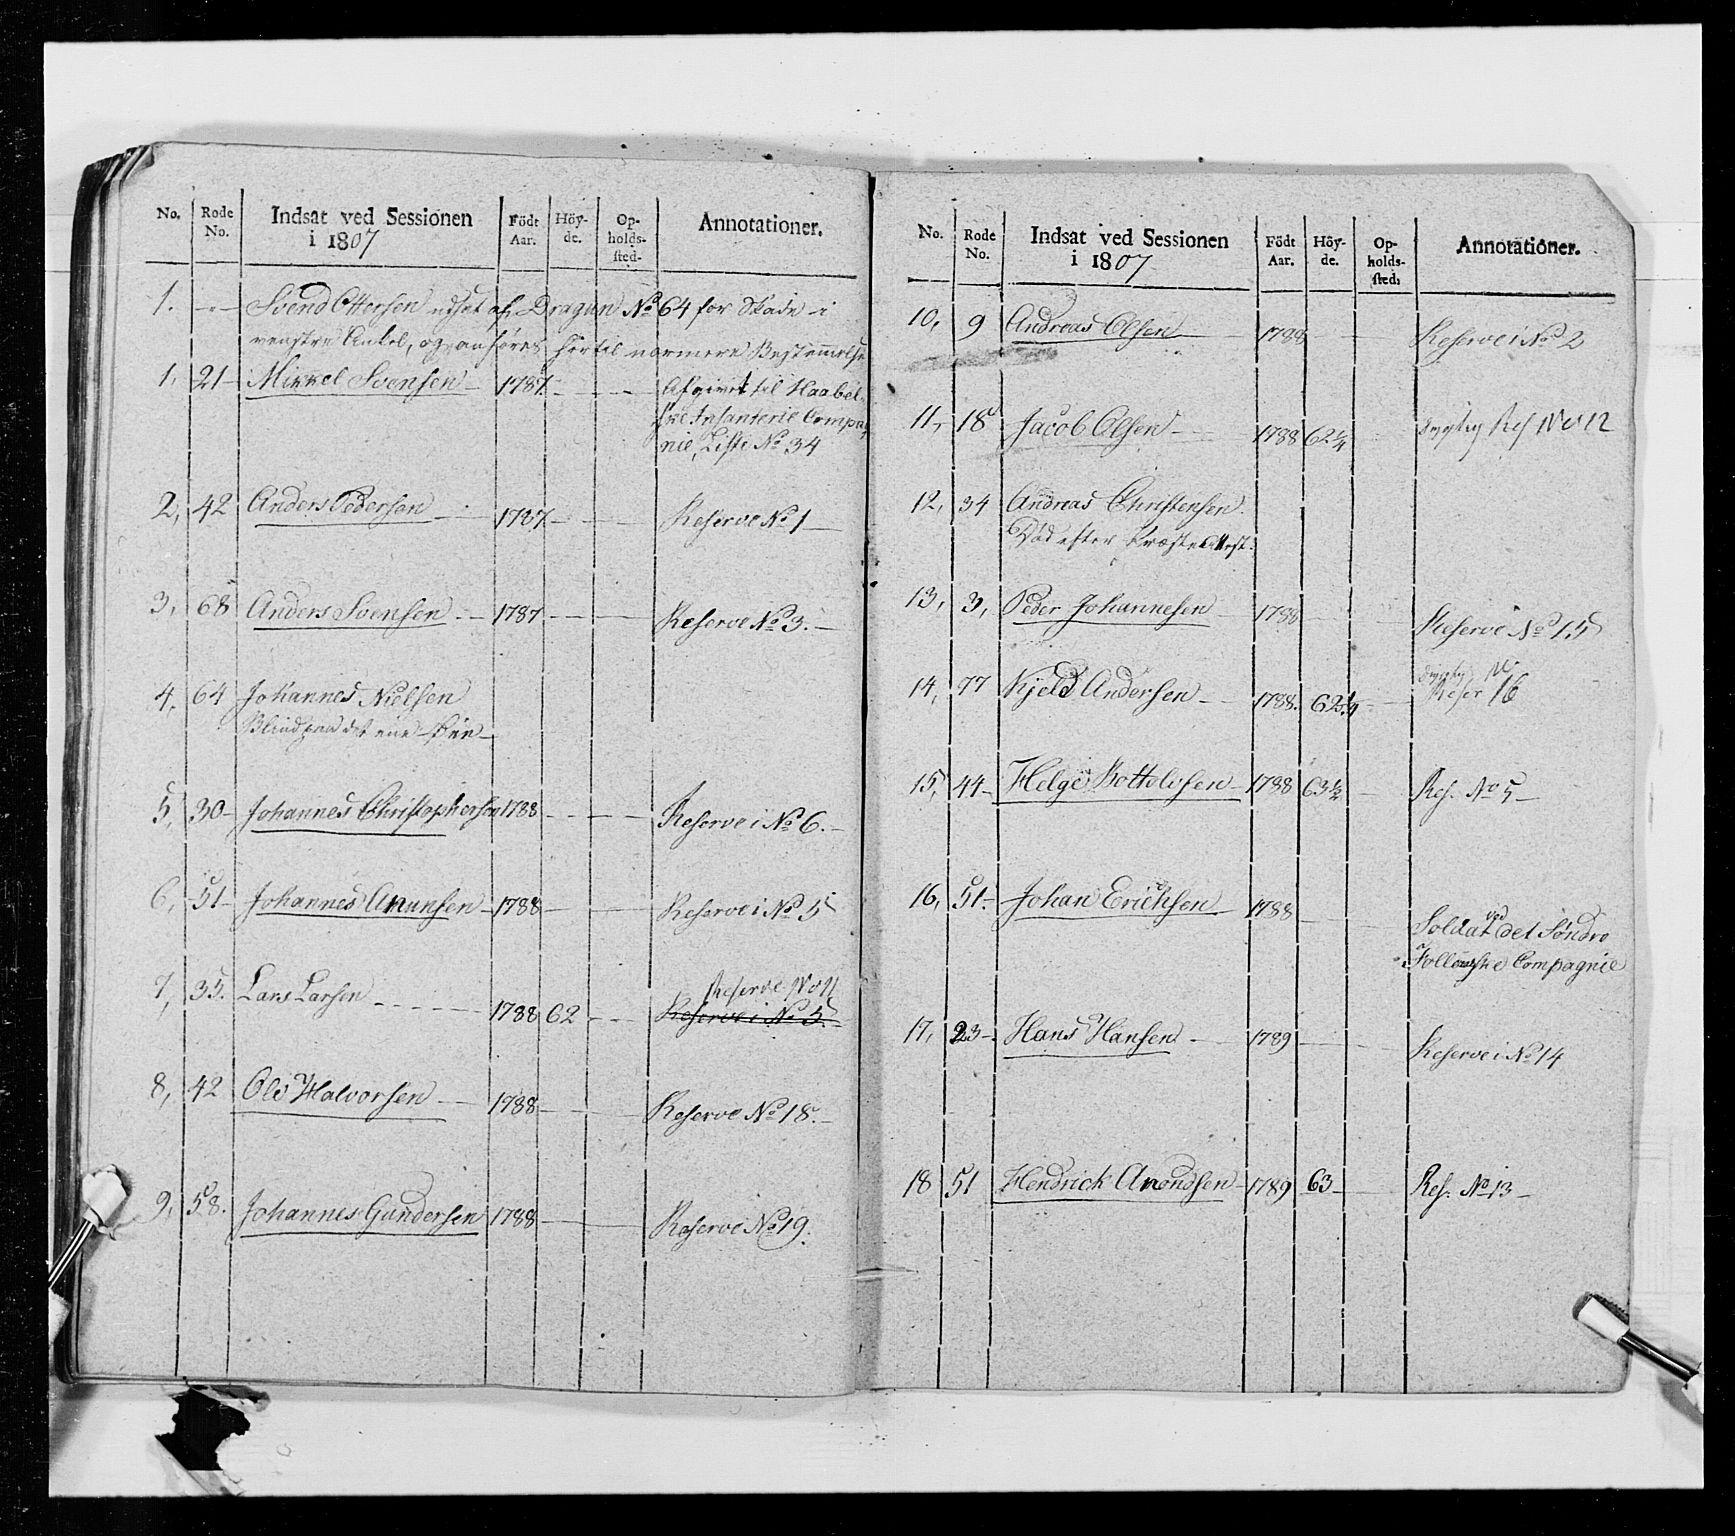 No. Rode No. Indsat ved Sessionen i 1807 Födt Aar. Höyde. Opholdssted. Annotationer.
1. -"- Svend Ottersen udsat af Dragun No 64 for Skade i
venstre Ankel, og anføres hertil nærmere Bestemmelse
1, 21 - Mikkel Svensen - 1787 - - - Afgivet til Haabel
ske Infanterie Compag
nie, Liste No 34
2, 42 Anders Pedersen - 1787 - - Reserve No 1 -
3, 68 Anders Svensen - 1787 - - - Reserve No 3. -
4, 64 Johannes Nielsen
Blind paa det ene Øie -
5, 30 - Johannes Christophersen 1788 - - - Reserve i No 6. -
6, 51 - Johannes Amunsen - 1788 - - - Reserve i No 5
Reserve No 11
7, 35. Lars Larsen - - - - 1788 62 - - Reserve i No 5
8, 42 Ole Halvorsen - 1788 - - - Reserve No 18. -
9, 58. Johannes Gundersen 1788 - - - Reserve No 19.
No. Rode No. Indsat ved Sessionen i 1807 Födt Aar. Höyde. Opholdssted. Annotationer.
10, 9 Andreas Olsen - 1788 - - Reserve i No 2
11, 18 Jacob Olsen - 1788 62 1/4 dygtig Res No 12
12, 34 Andreas Christensen.
Død efter Præste Attest.
13, 3, Peder Johannesen 1788 - Reserve No 15
dygtig No
14, 77 Kjeld Andersen - 1788. 62 1/4 - Reser 16
15, 44 - Helge Bottolvsen - 1788 63 1/2 - Res. No 5 -
16, 51. - Johan Erichsen - 1788 - -
Soldat ved det Søndre
Followske Compagnie
17, 23 - Hans Hansen - 1789 - - Reserve i No 14
18 51 Hendrick Amondsen - 1789 63 - - Res. No 13 -